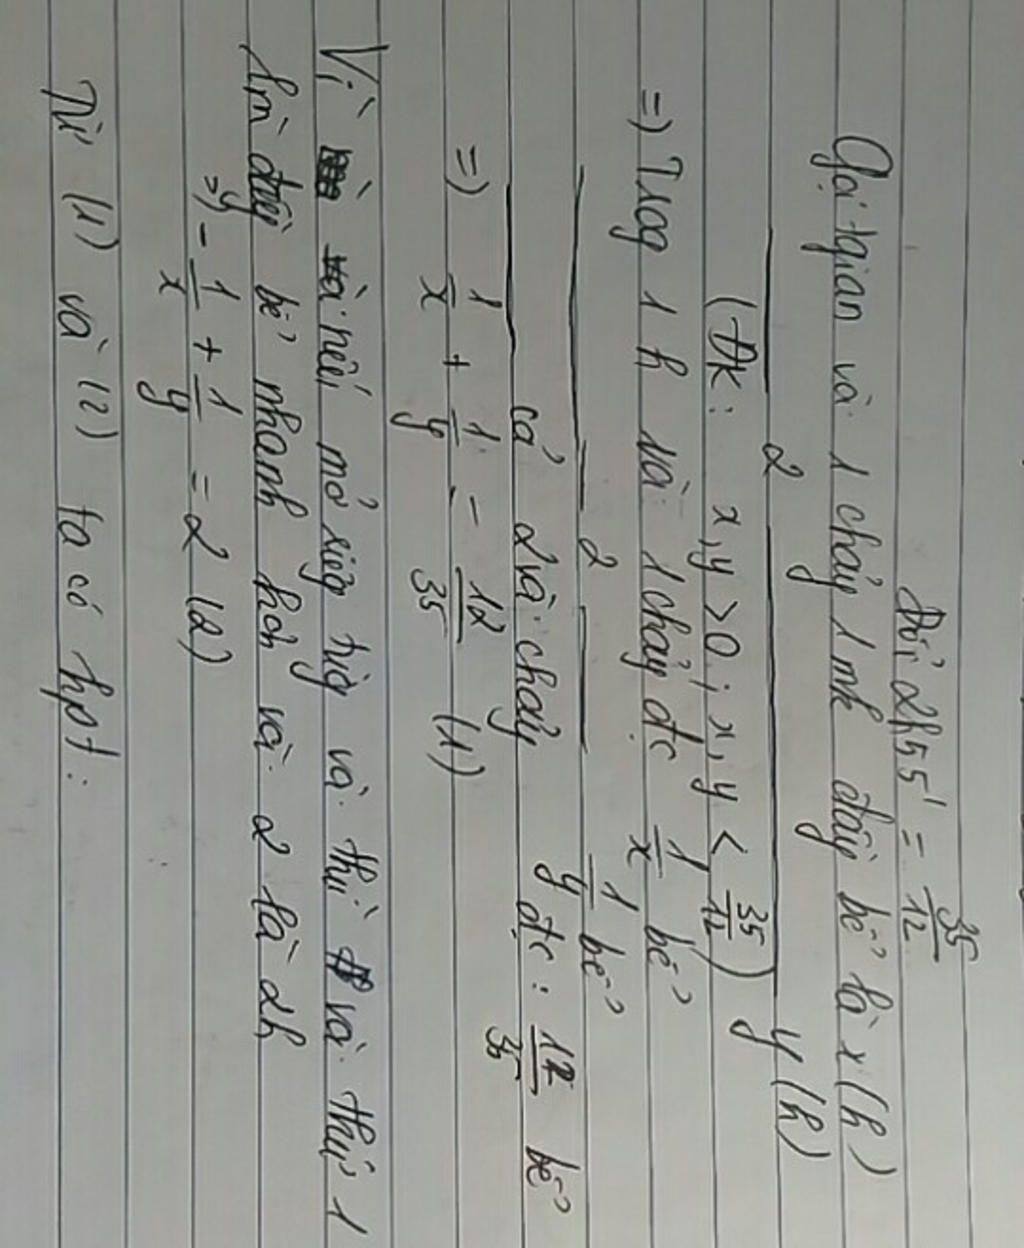 Đổi 2h55' = 35/12
Gọi tgian vòi 1 chảy 1 mk đầy bể là x (h)
2 y (h)
(ĐK: x, y > 0; x, y < 35/12)
=) Trog 1 h vòi 1 chảy đc 1/x bể
2 1/y bể
cả 2 vòi chảy đc: 12/35 bể
=) 1/x + 1/y = 12/35 (1)
Vì nếu mở riêg từg vòi thì vòi thứ 1
làm đầy bể nhanh hơn vòi 2 là 2h
=) - 1/x + 1/y = 2 (2)
Từ (1) và (2) ta có hpt: